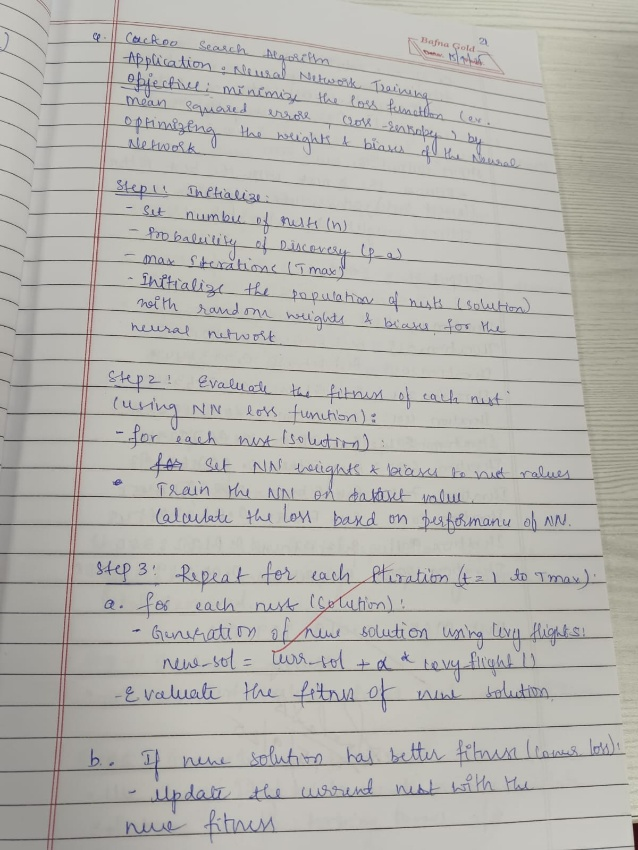 Bafna Gold
21
Date:
4. Cuckoo Search Algorithm
Application: Neural Network Training
Objective: minimize the loss function (ex.
mean squared error, cross-entropy) by
optimizing the weights & biases of the Neural
Network
Step 1: Initialize:
- Set number of nests (n)
- Probability of Discovery (p_a)
- max Iterations (Tmax)
- Initialize the population of nests (solution)
with random weights & biases for the
neural network.
Step 2: Evaluate the fitness of each nest
(using NN loss function):
- for each nest (solution):
for Set NN weights & biases to nest values
• Train the NN on dataset value.
Calculate the loss based on performance of NN.
Step 3: Repeat for each Iteration (t = 1 to Tmax):
a. for each nest (solution):
- Generation of new solution using levy flights:
new-sol = curr-sol + α * levy-flight()
- Evaluate the fitness of new solution
b. If new solution has better fitness (lower loss):
- Update the current nest with the
new fitness